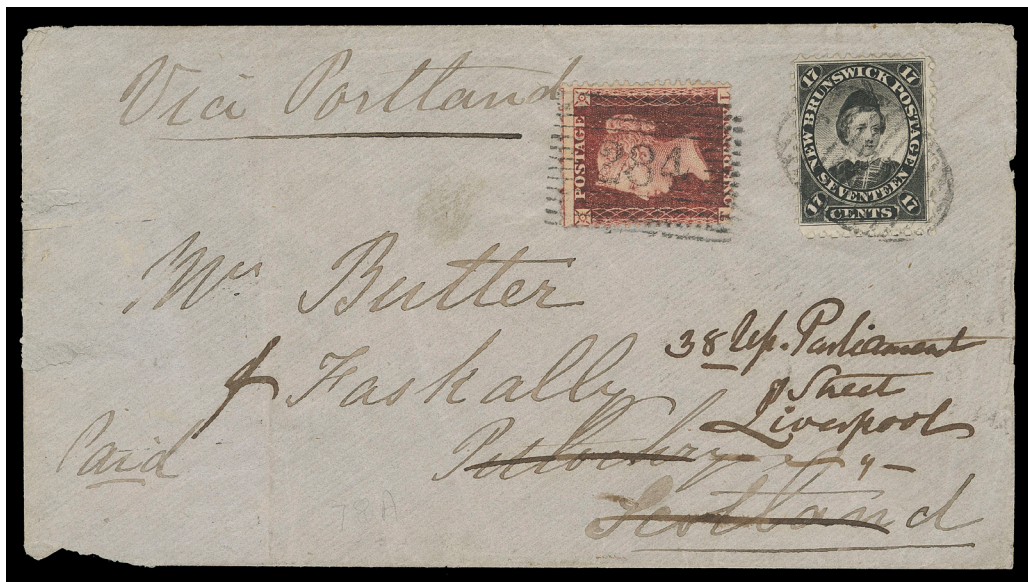 Via Portland
POSTAGE
284
17 17
NEW BRUNSWICK POSTAGE
SEVENTEEN
17 17
CENTS
Mrs Butter
of Faskally
38 Up. Parliament
Street
Liverpool
Paid
Pitlochry
Scotland
78A